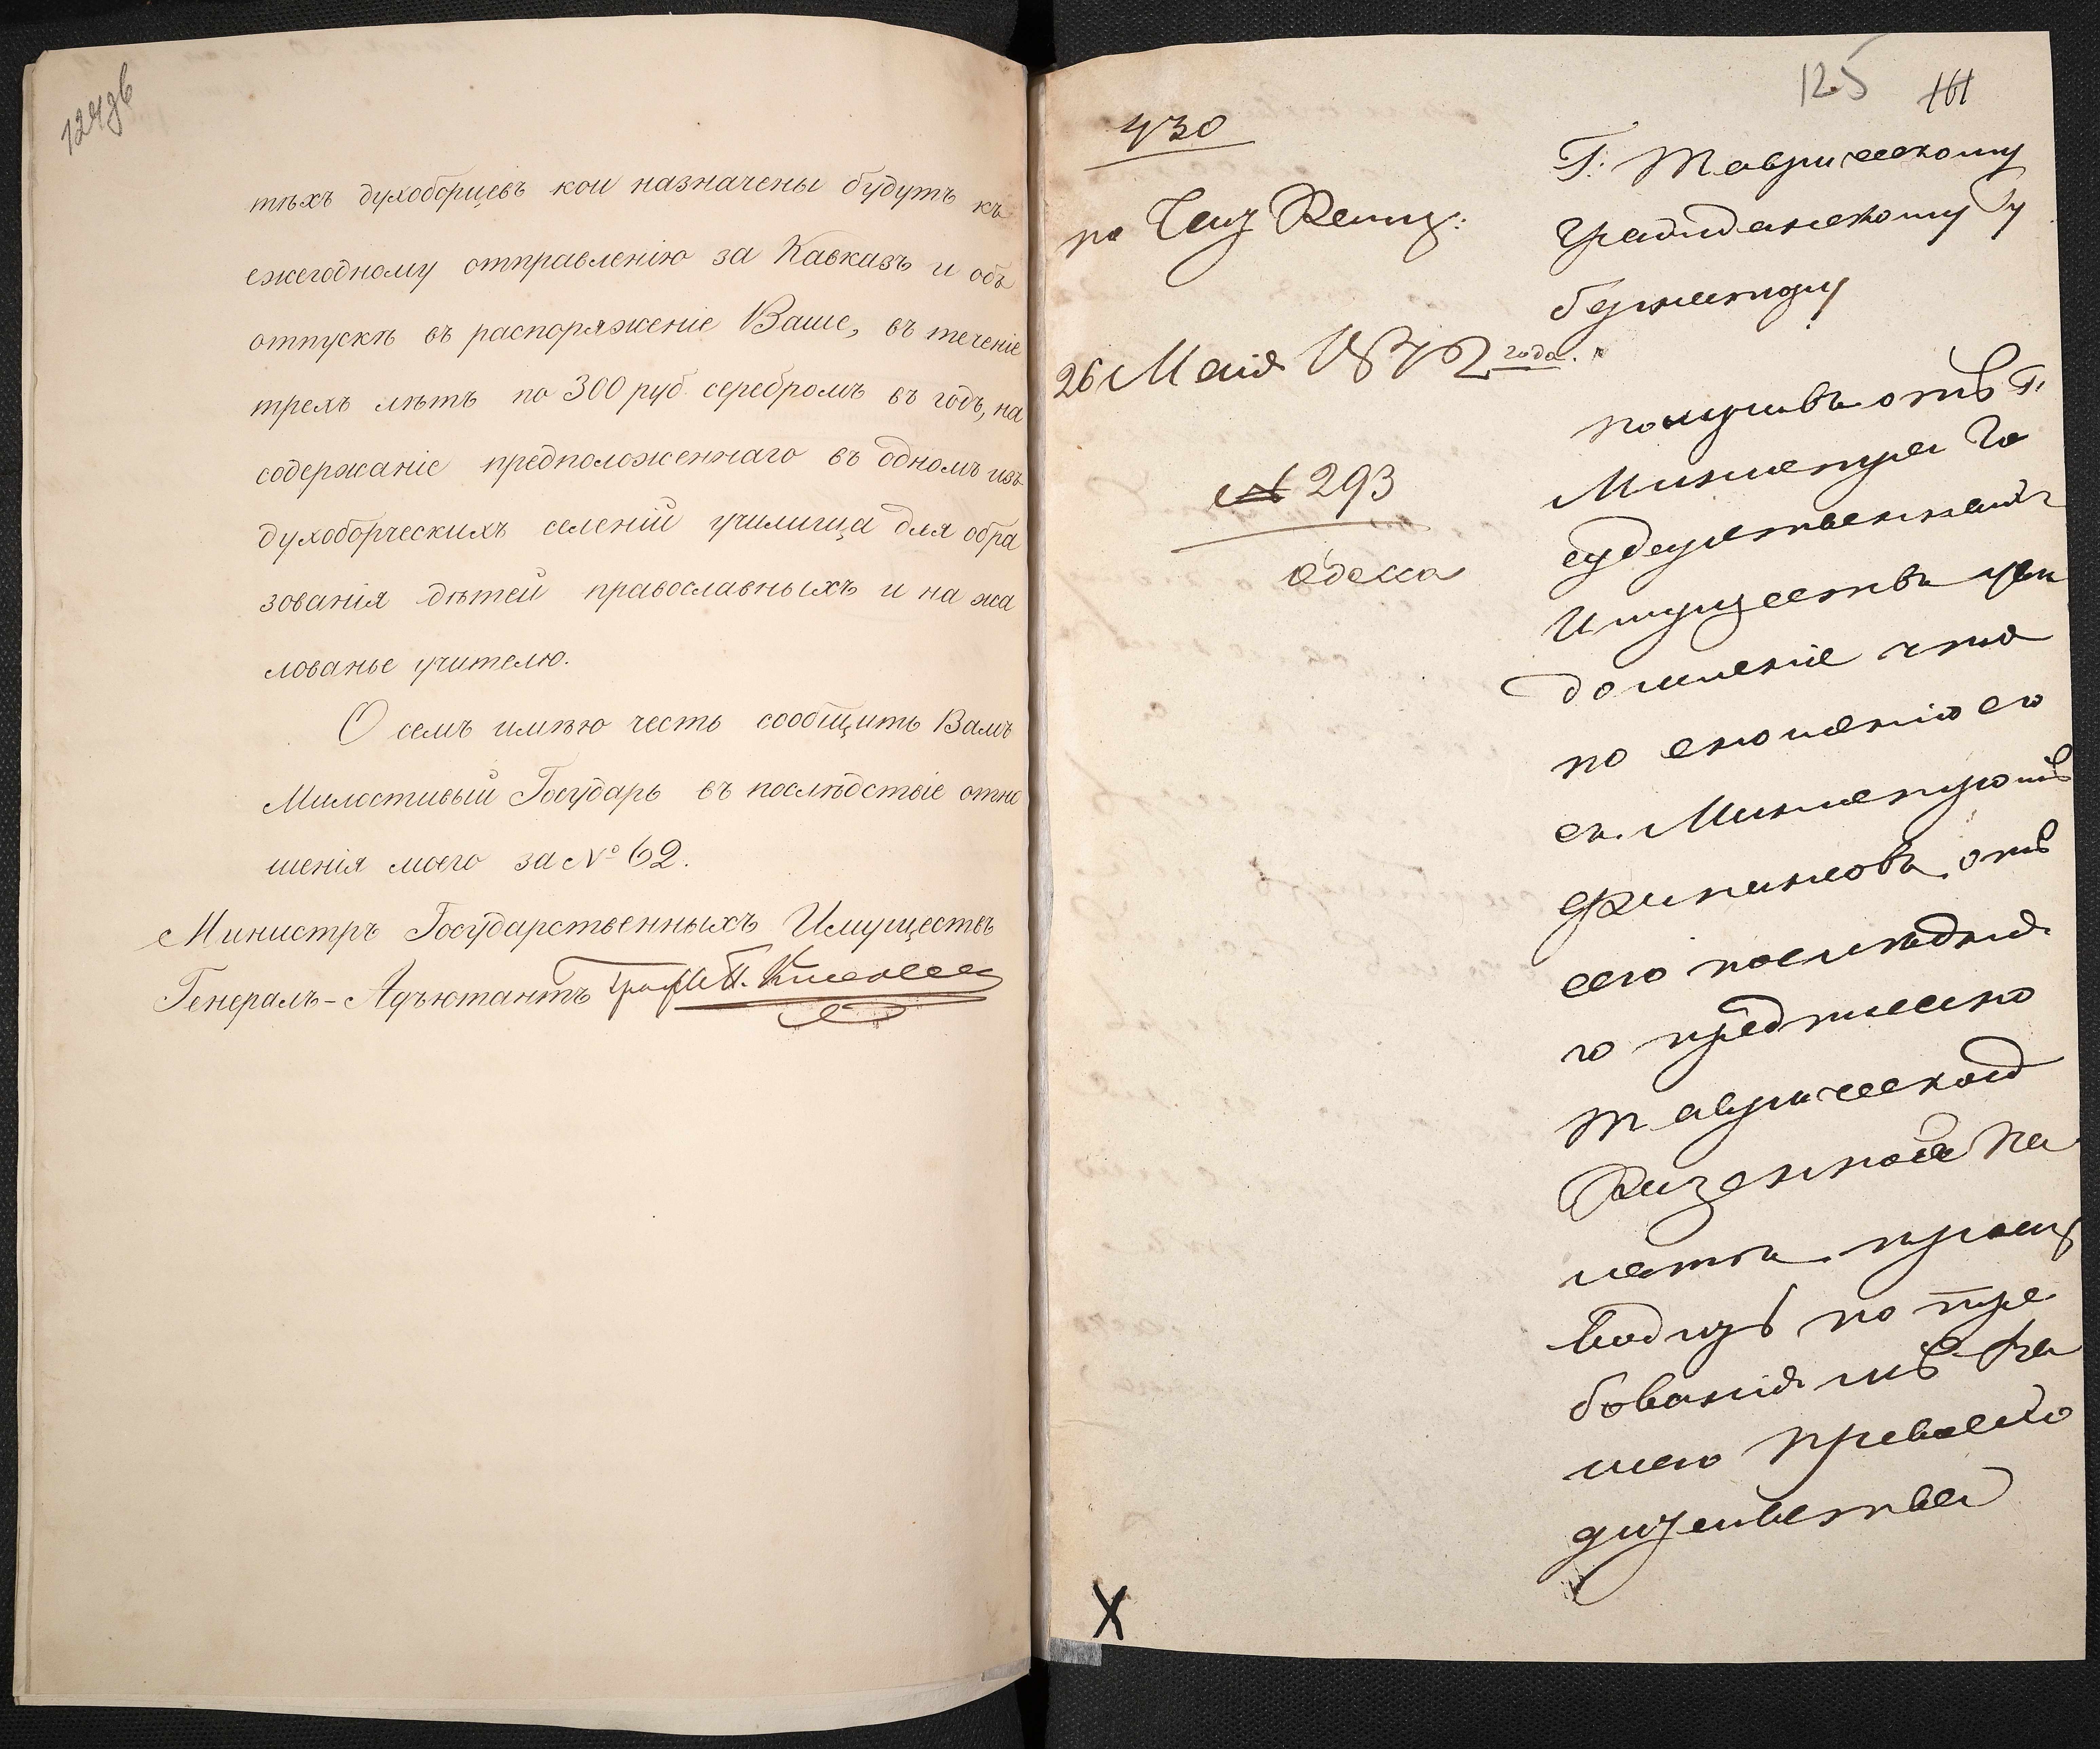 124об
тѣхъ духоборцевъ кои назначены будутъ къ
ежегодному отправленію за Кавказъ и объ
отпускѣ въ распоряженіе Ваше, въ теченіе
трехъ лѣтъ по 300 руб. серебромъ въ годъ, на
содержаніе предположеннаго въ одномъ изъ
духоборческихъ селеній училища для обра
зованія дѣтей православныхъ и на жа
лованье учителю.
О семъ имѣю честь сообщить Вамъ
Милостивый Государь въ послѣдствіе отно
шенія моего за № 62.
Министръ Государственныхъ Имуществъ
Генералъ-Адъютантъ Графъ П. Киселевъ
125 161
430
по Канц:
26 Маія 1842 года.
№ 293
Одесса
Г. Таврическому
Гражданскому Гу
бернатору
Получивъ отъ Г.
Министра Го
сударственныхъ
Имуществъ увѣ
домленіе что
по сношенію его
съ Министромъ
Финансовъ, отъ
сего послѣдня
го предписано
Таврической
Казенной Па
латѣ, произ
водить по тре
бованіямъ Ва
шего Превосхо
дительства
X